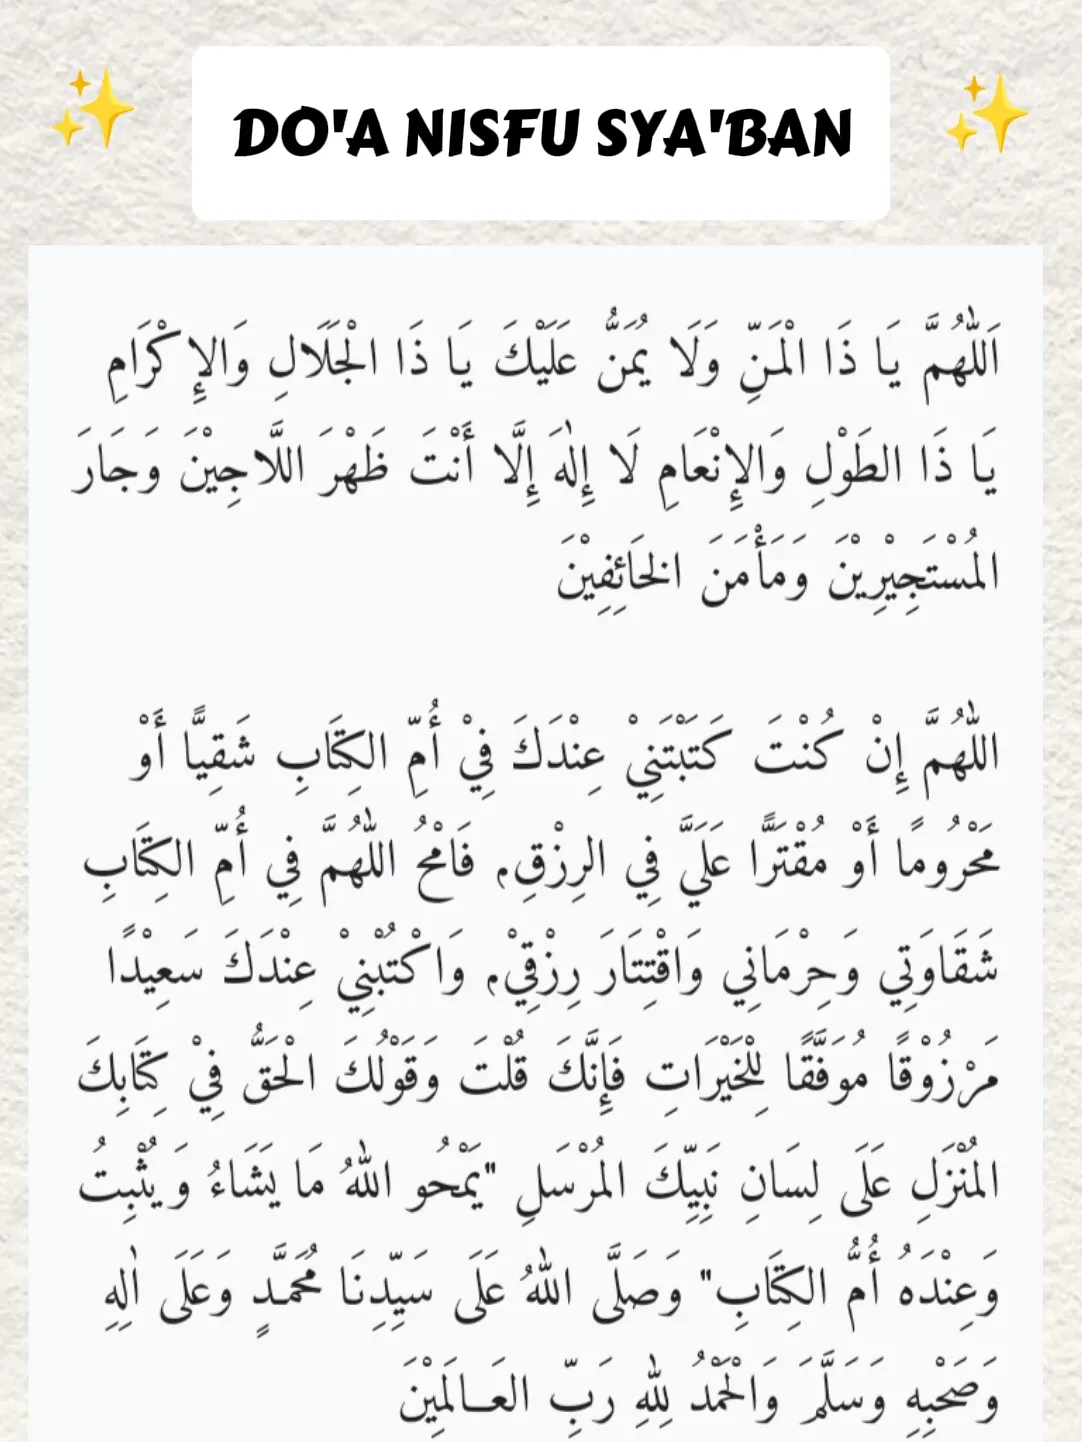 DO'A NISFU SYA'BAN
اَللّٰهُمَّ يَا ذَا الْمَنِّ وَلَا يُمَنُّ عَلَيْكَ يَا ذَا الْجَلَالِ وَالإِكْرَامِ
يَا ذَا الطَوْلِ وَالإِنْعَامِ لَا إِلٰهَ إِلَّا أَنْتَ ظَهْرَ اللَّاجِيْنَ وَجَارَ
المُسْتَجِيْرِيْنَ وَمَأْمَنَ الخَائِفِيْنَ
اللّٰهُمَّ إِنْ كُنْتَ كَتَبْتَنِيْ عِنْدَكَ فِيْ أُمِّ الكِتَابِ شَقِيًّا أَوْ
مَحْرُومًا أَوْ مُقْتَرًّا عَلَيَّ فِي الرِزْقِ، فَامْحُ اللّٰهُمَّ فِي أُمِّ الكِتَابِ
شَقَاوَتِي وَحِرْمَانِي وَاقْتِتَارَ رِزْقِيْ، وَاكْتُبْنِيْ عِنْدَكَ سَعِيْدًا
مَرْزُوْقًا مُوَفَّقًا لِلْخَيْرَاتِ فَإِنَّكَ قُلْتَ وَقَوْلُكَ الْحَقُّ فِيْ كِتَابِكَ
المُنْزَلِ عَلَى لِسَانِ نَبِيِّكَ المُرْسَلِ "يَمْحُو اللهُ مَا يَشَاءُ وَيُثْبِتُ
وَعِنْدَهُ أُمُّ الكِتَابِ" وَصَلَّى اللهُ عَلَى سَيِّدِنَا مُحَمَّدٍ وَعَلَى اٰلِهِ
وَصَحْبِهِ وَسَلَّمَ وَالْحَمْدُ لِلّٰهِ رَبِّ العَـالَمِيْنَ